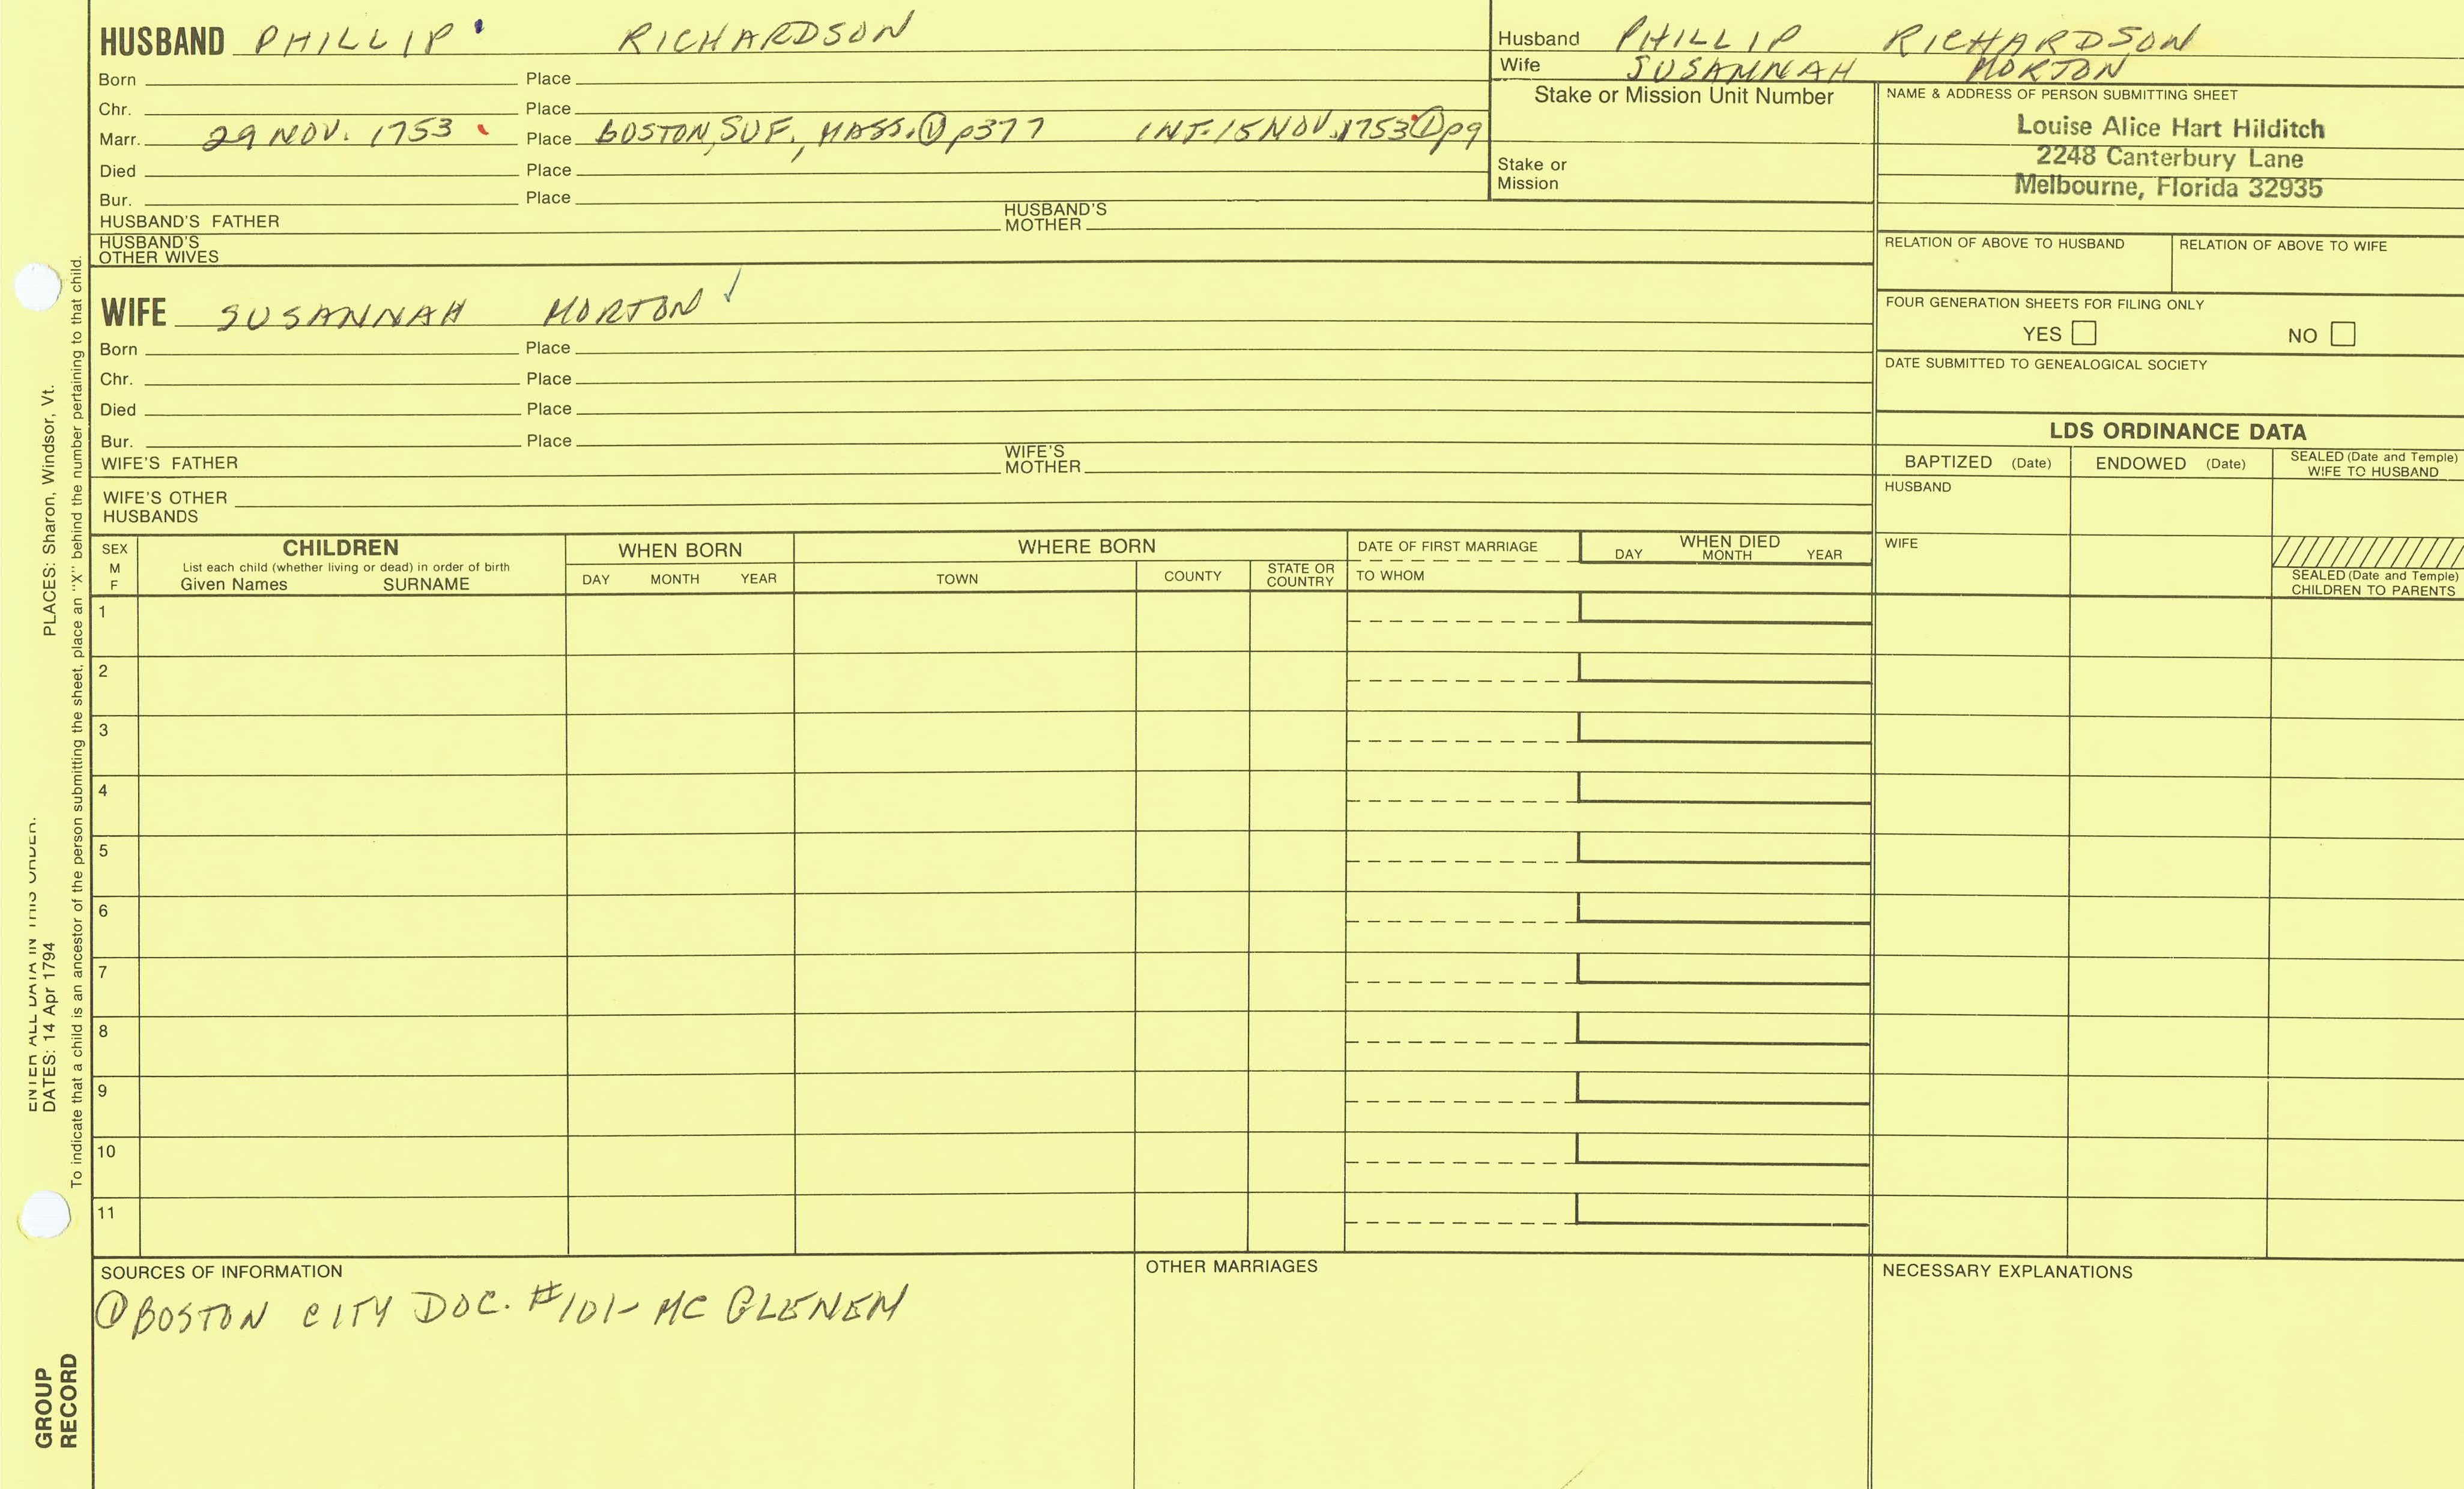 HUSBAND PHILLIP RICHARDSON
Born Place
Chr. Place
Marr. 29 NOV. 1753 Place BOSTON, SUF., MASS. ① p377 INT. 15 NOV. 1753 ① p9
Died Place
Bur. Place
HUSBAND'S FATHER HUSBAND'S MOTHER
HUSBAND'S
OTHER WIVES
Husband PHILLIP RICHARDSON
Wife SUSANNAH MORTON
Stake or Mission Unit Number
Stake or
Mission
NAME & ADDRESS OF PERSON SUBMITTING SHEET
Louise Alice Hart Hilditch
2248 Canterbury Lane
Melbourne, Florida 32935
RELATION OF ABOVE TO HUSBAND RELATION OF ABOVE TO WIFE
FOUR GENERATION SHEETS FOR FILING ONLY
YES NO
DATE SUBMITTED TO GENEALOGICAL SOCIETY
WIFE SUSANNAH MORTON ✓
Born Place
Chr. Place
Died Place
Bur. Place
WIFE'S FATHER WIFE'S MOTHER
WIFE'S OTHER
HUSBANDS
LDS ORDINANCE DATA
BAPTIZED (Date) ENDOWED (Date) SEALED (Date and Temple) WIFE TO HUSBAND
HUSBAND
WIFE
SEALED (Date and Temple)
CHILDREN TO PARENTS
SEX
M
F
CHILDREN
List each child (whether living or dead) in order of birth
Given Names SURNAME
WHEN BORN
DAY MONTH YEAR
WHERE BORN
TOWN COUNTY STATE OR COUNTRY
DATE OF FIRST MARRIAGE
TO WHOM
WHEN DIED
DAY MONTH YEAR
1
2
3
4
5
6
7
8
9
10
11
SOURCES OF INFORMATION
① BOSTON CITY DOC. #101- MC GLENEM
OTHER MARRIAGES
NECESSARY EXPLANATIONS
ENTER ALL DATA IN THIS ORDER.
DATES: 14 Apr 1794 PLACES: Sharon, Windsor, Vt.
To indicate that a child is an ancestor of the person submitting the sheet, place an "X" behind the number pertaining to that child.
GROUP
RECORD